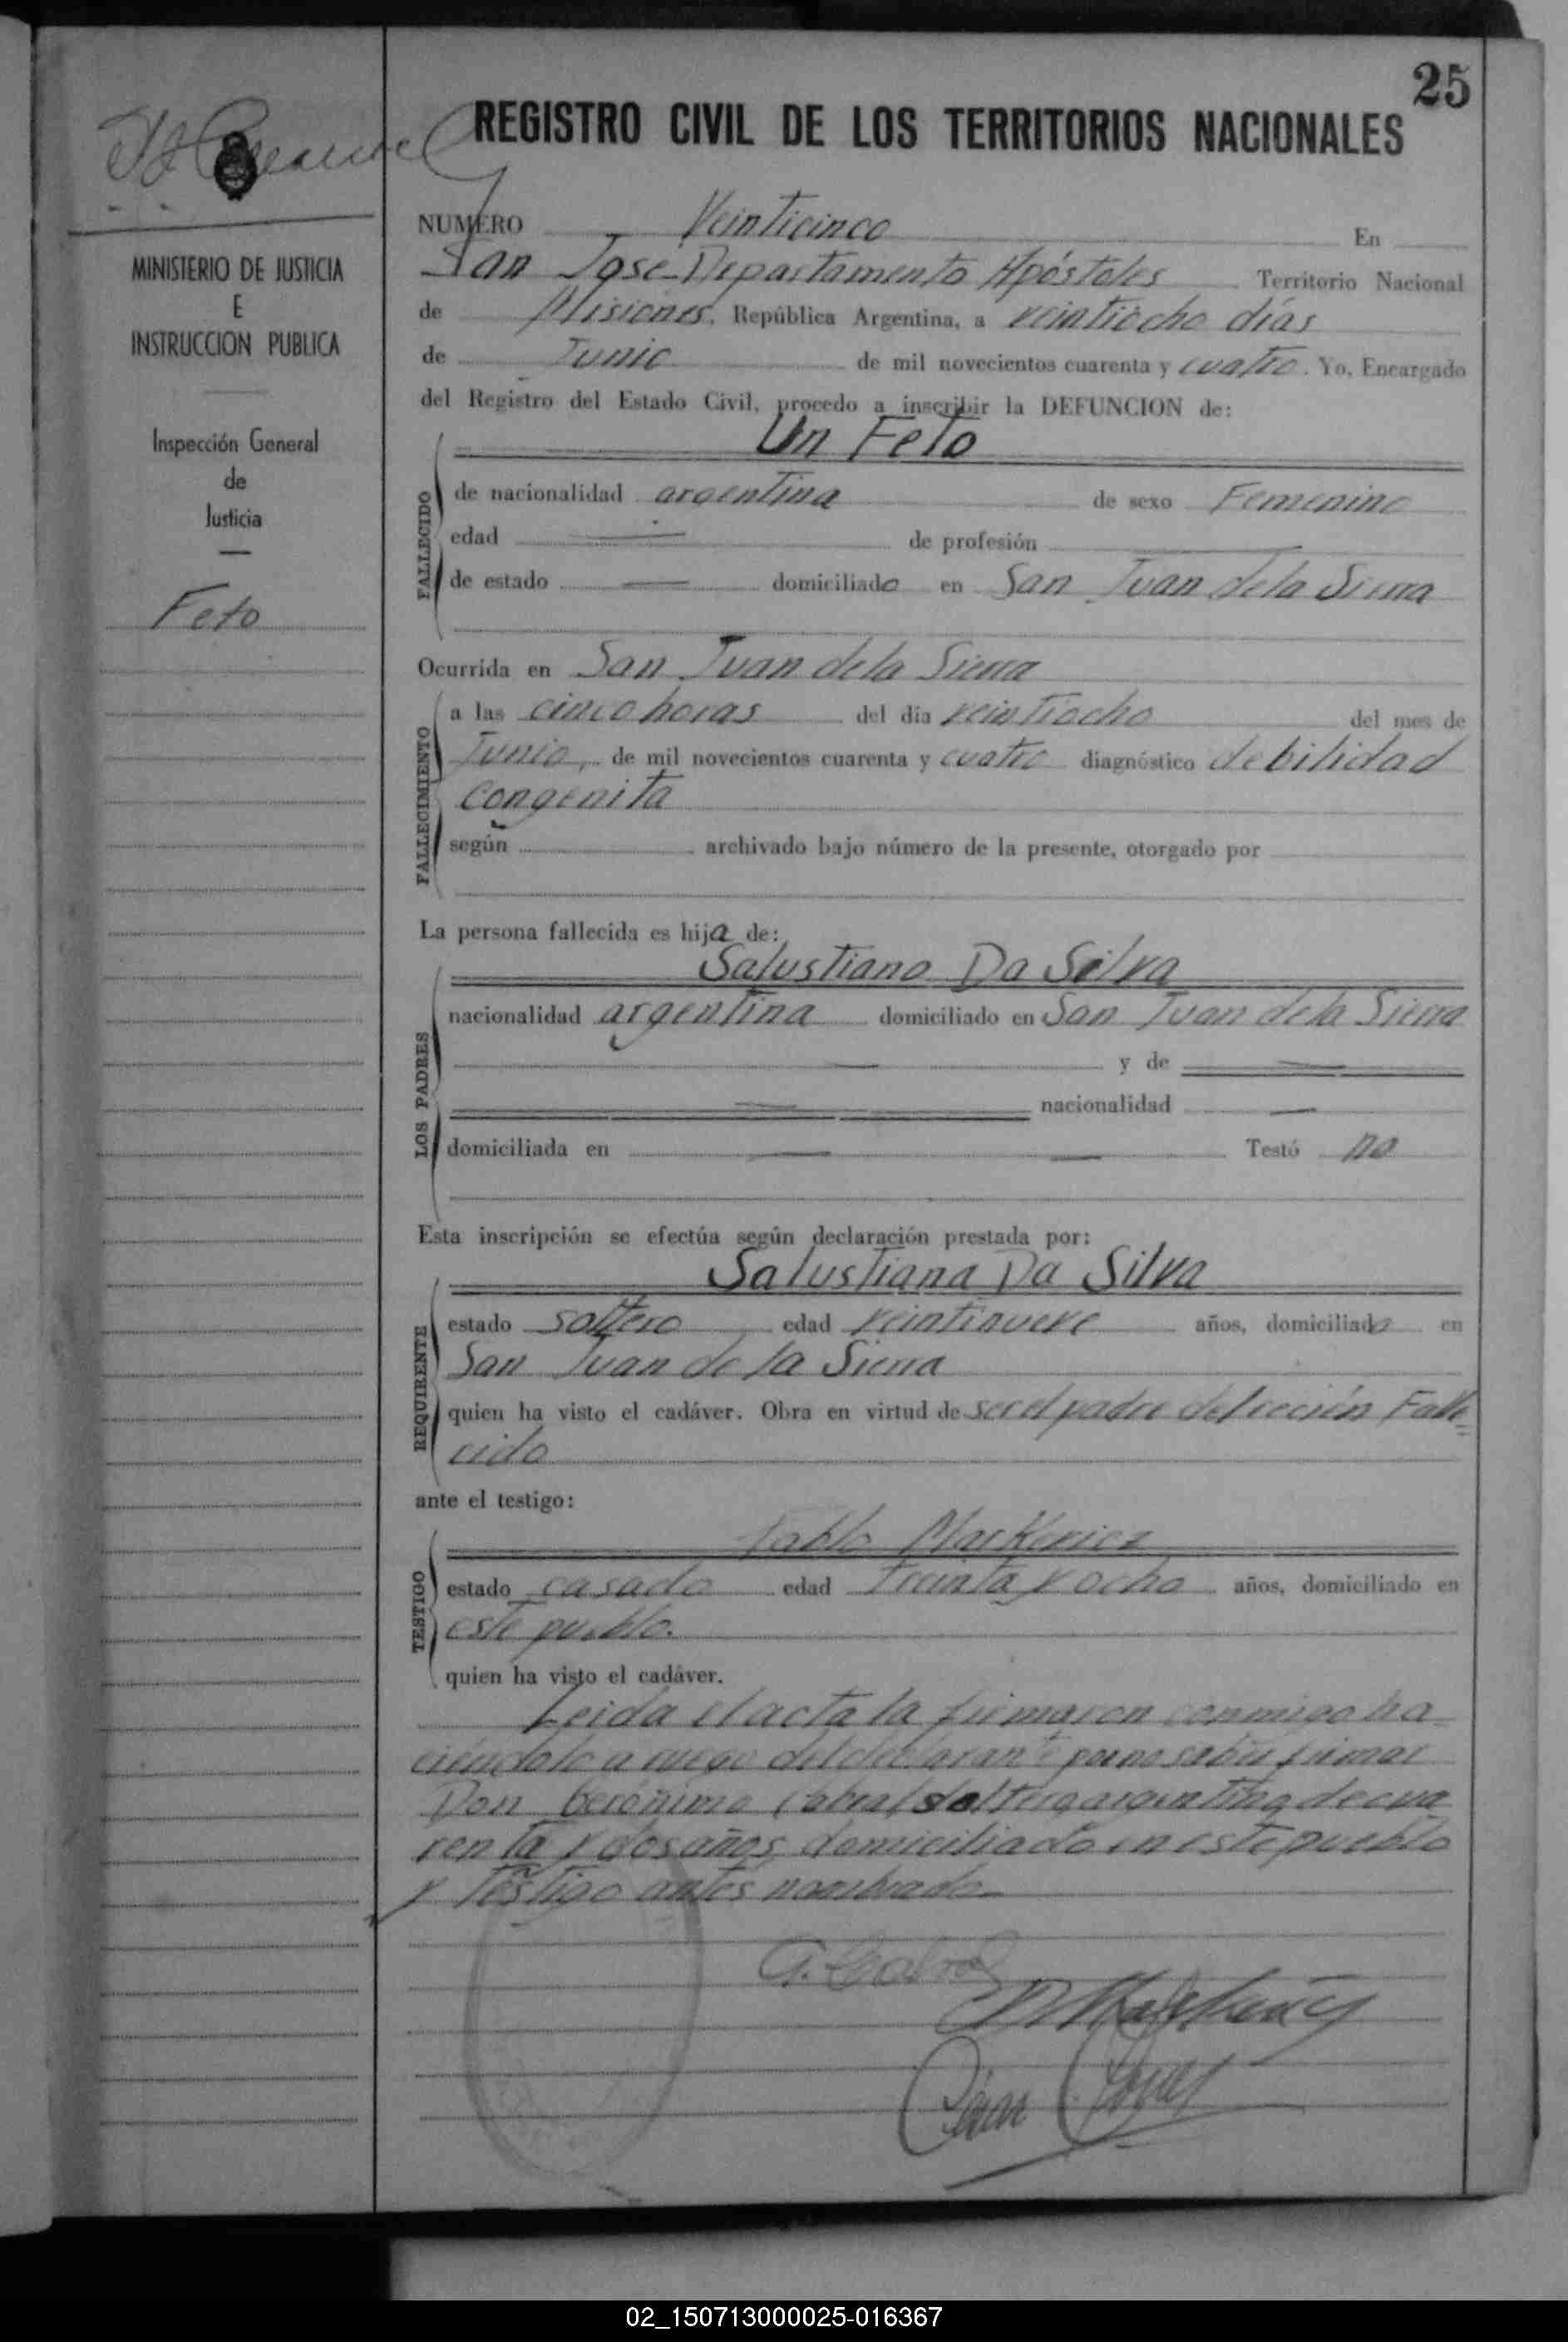 25
REGISTRO CIVIL DE LOS TERRITORIOS NACIONALES
MINISTERIO DE JUSTICIA
E
INSTRUCCION PUBLICA
Inspección General
de
Justicia
Feto
NUMERO Veinticinco En
San Jose Departamento Apóstoles Territorio Nacional
de Misiones, República Argentina, a veintiocho días
de Junio de mil novecientos cuarenta y cuatro. Yo, Encargado
del Registro del Estado Civil, procedo a inscribir la DEFUNCION de:
Un Feto
FALLECIDO
de nacionalidad argentina de sexo Femenino
edad de profesión
de estado domiciliado en San Juan de la Sierra
Ocurrida en San Juan de la Sierra
FALLECIMIENTO
a las cinco horas del día veintiocho del mes de
Junio, de mil novecientos cuarenta y cuatro diagnóstico debilidad
congenita
según archivado bajo número de la presente, otorgado por
La persona fallecida es hija de:
Salustiano Da Silva
LOS PADRES
nacionalidad argentina domiciliado en San Juan de la Sierra
y de
nacionalidad
domiciliada en Testó no
Esta inscripción se efectúa según declaración prestada por:
Salustiana Da Silva
REQUIRENTE
estado soltero edad veintinueve años, domiciliado en
San Juan de la Sierra
quien ha visto el cadáver. Obra en virtud de ser el padre del recién Falle
cido
ante el testigo:
Pablo Markevicz
TESTIGO
estado casado edad treinta y ocho años, domiciliado en
este pueblo.
quien ha visto el cadáver.
Leida el acta la firmaron conmigo ha-
ciéndolo a ruego del declarante por no saber firmar
Don Gerónimo Cabral soltero, argentino, de cua
renta y dos años, domiciliado en este pueblo
y testigo antes nombrado
G. Cabral
02_150713000025-016367